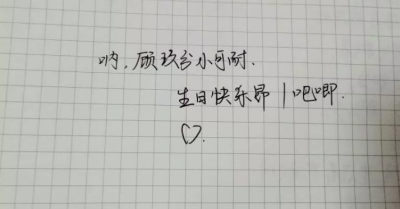 呐,顾玖兮小可耐.
生日快乐昂|吧唧.
♡.